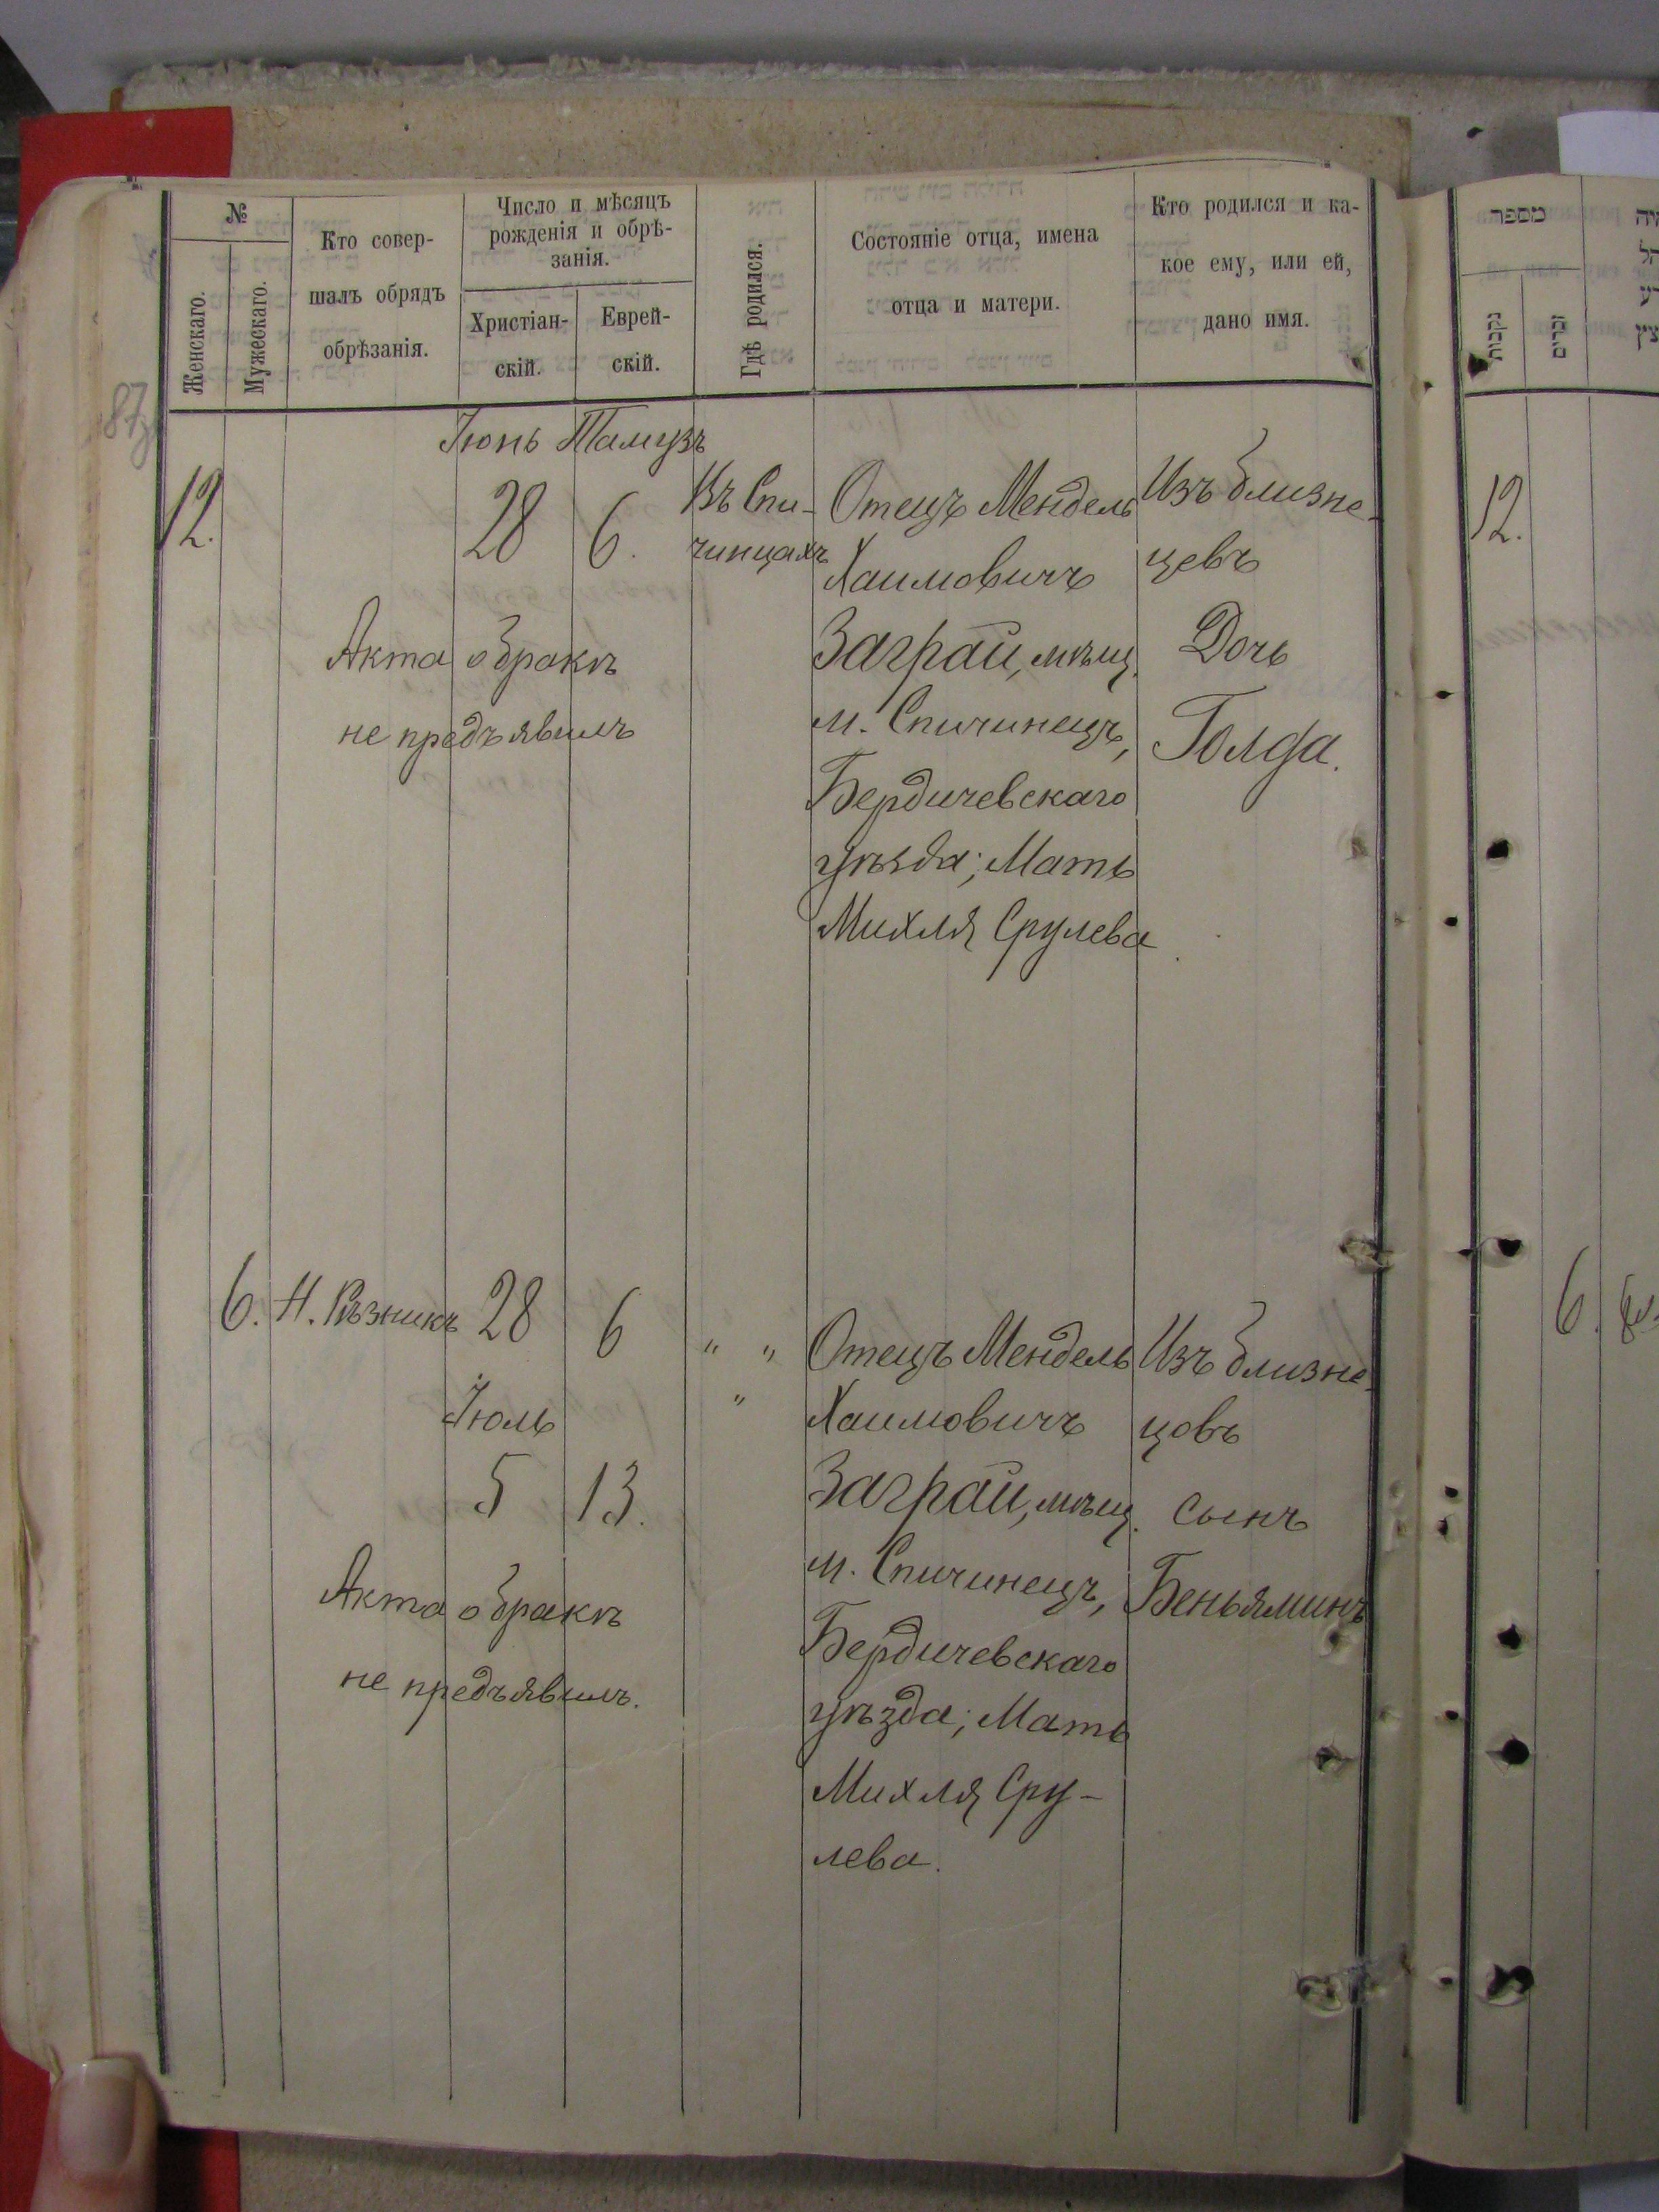 №
Женскаго.
Мужескаго.
Кто совер-
шалъ обрядъ
обрѣзанія.
Число и мѣсяцъ
рожденія и обрѣ-
занія.
Христіан-
скій.
Еврей-
скій.
Гдѣ родился.
Состояніе отца, имена
отца и матери.
Кто родился и ка-
кое ему, или ей,
дано имя.
Іюнь Тамузъ
12.
28
6.
Въ Спи-
чинцахъ
Отецъ Мендель
Хаимовичъ
Заграй, мѣщ.
м. Спичинецъ,
Бердичевскаго
уѣзда; Мать
Михля Срулева
Изъ близне-
цевъ
Дочь
Голда.
Акта о бракѣ
не предъявилъ
6.
Н. Рѣзникъ
28
6
" "
"
Іюль
5
13.
Отецъ Мендель
Хаимовичъ
Заграй, мѣщ.
м. Спичинецъ,
Бердичевскаго
уѣзда; Мать
Михля Сру-
лева.
Изъ близне-
цовъ
сынъ
Беньяминъ
Акта о бракѣ
не предъявилъ.
מספר
נקבות
זכרים
12.
6.